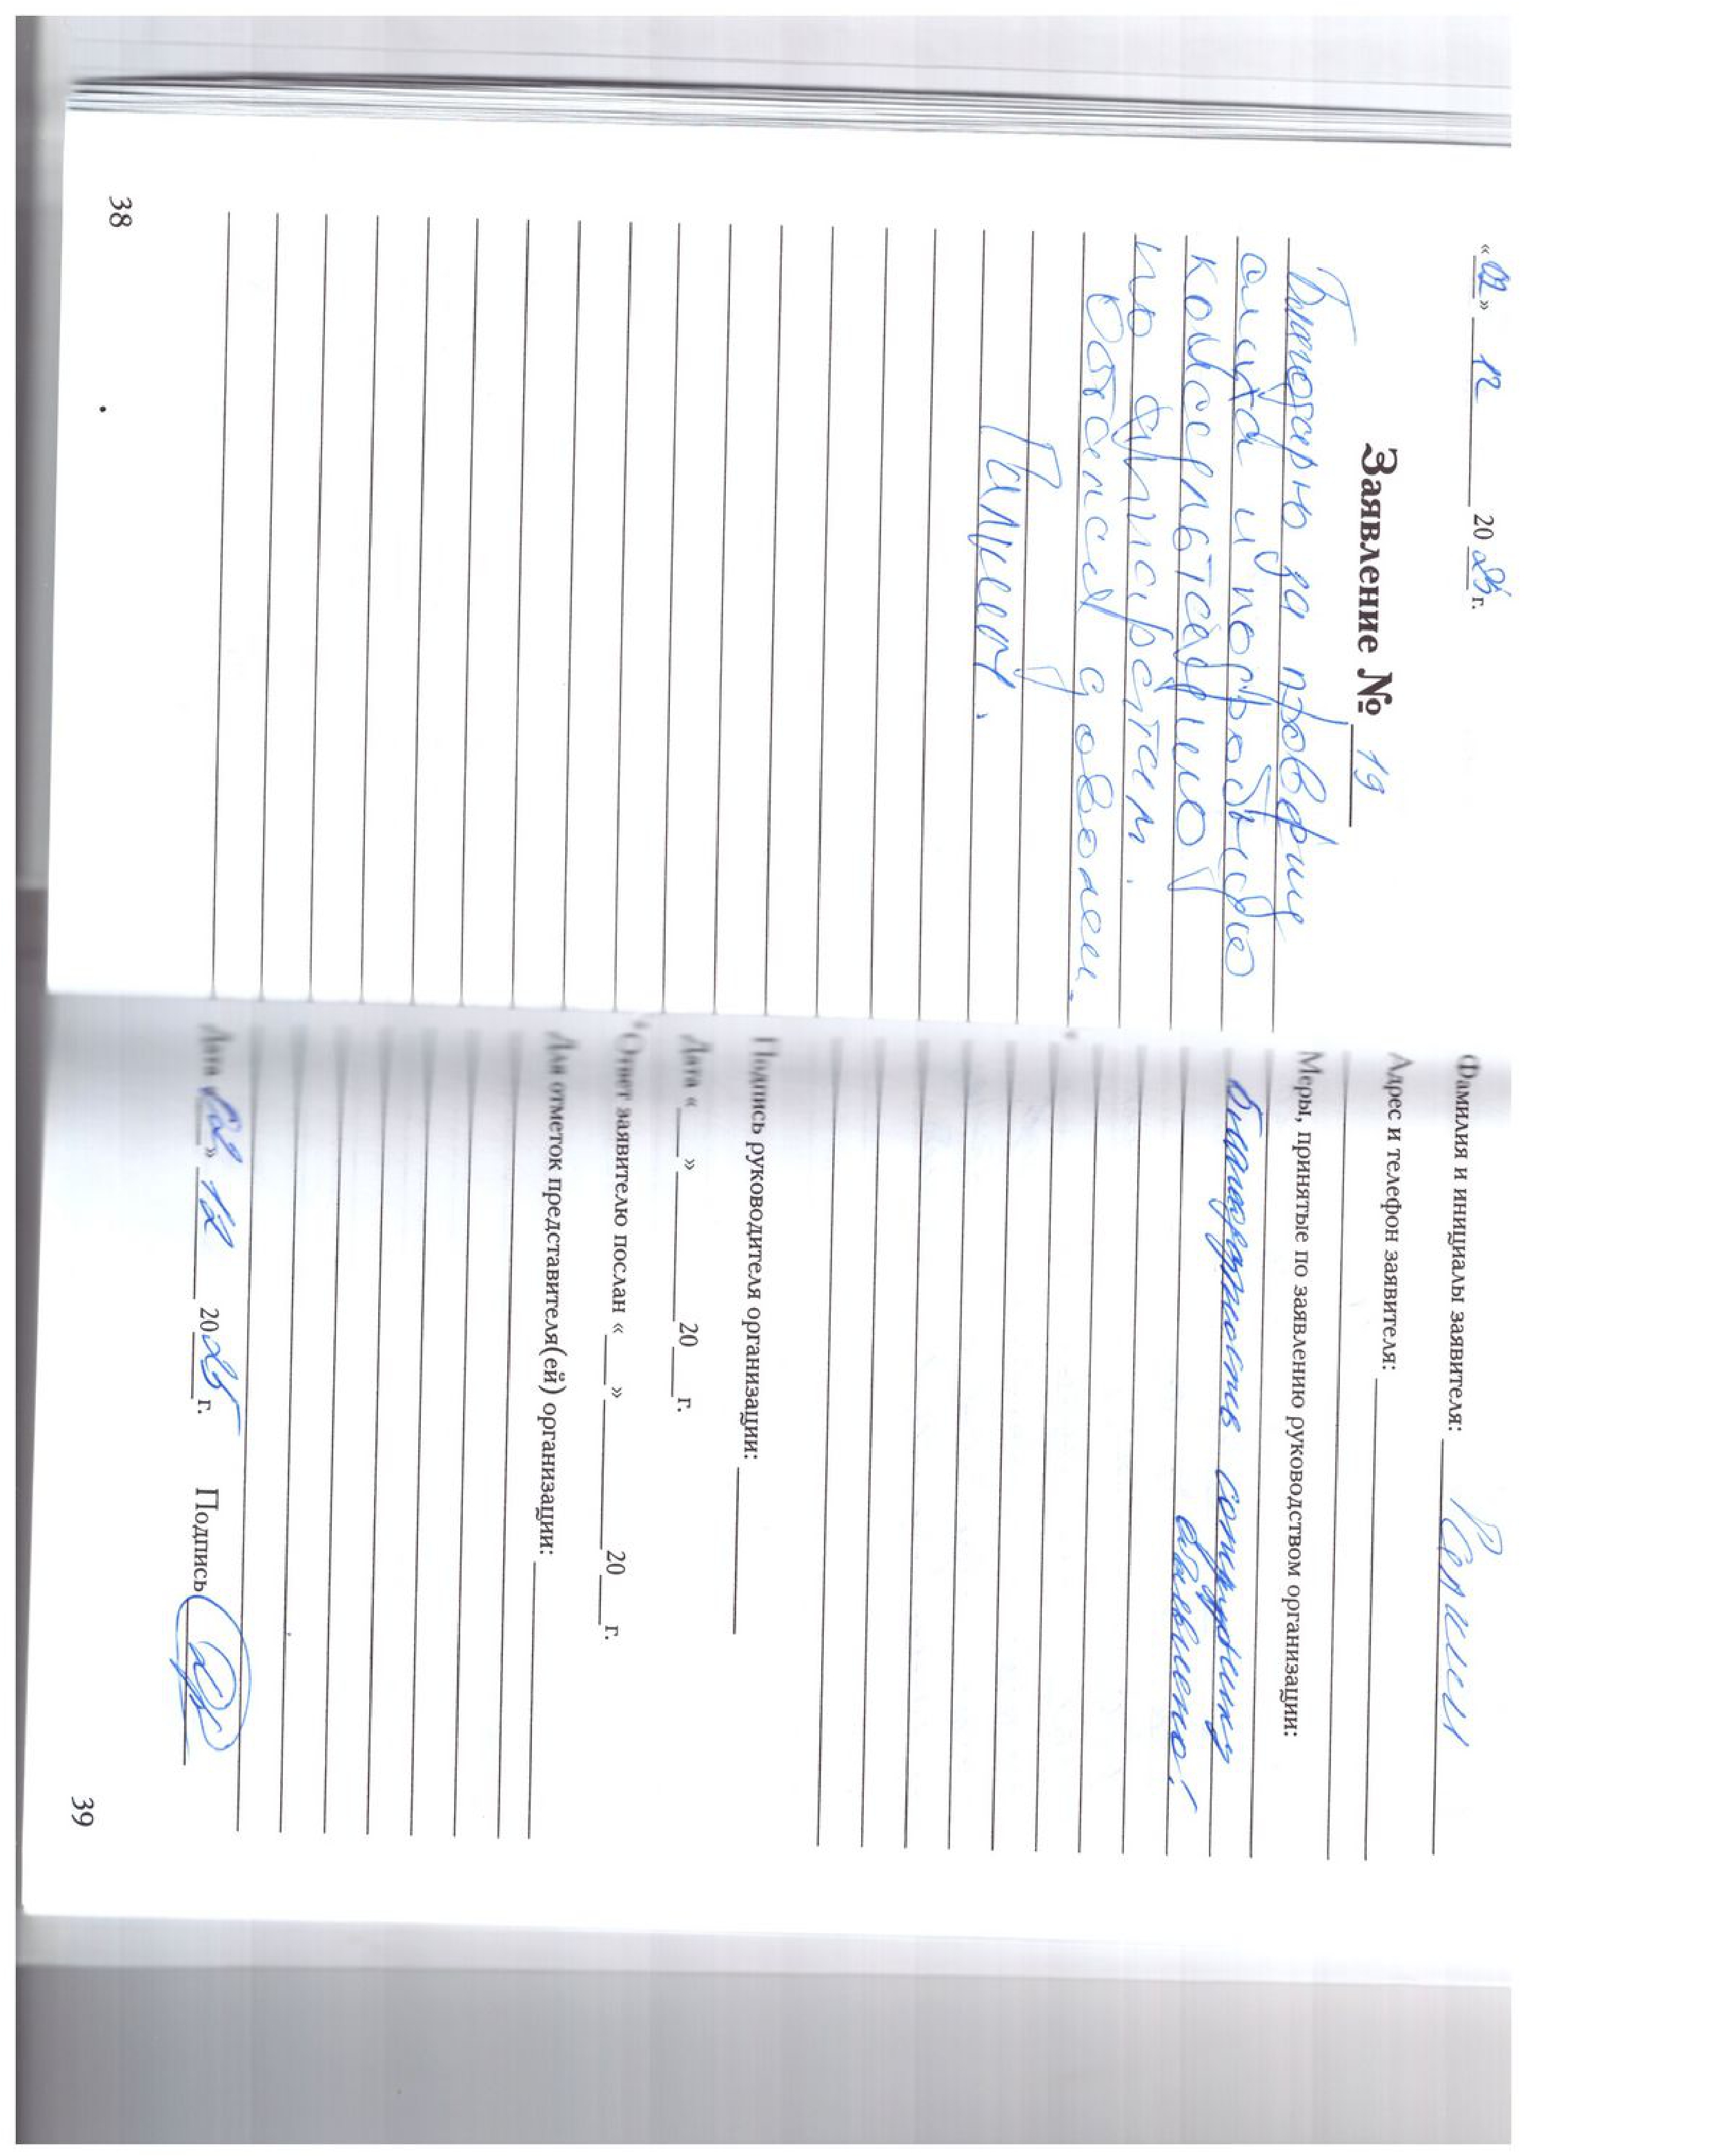 «02» 12 2025 г.
Заявление № 19
Благодарю за проверку
слуха и подробную
консультацию
по аппаратам.
Остался доволен.
38
Фамилия и инициалы заявителя:
Адрес и телефон заявителя:
Меры, принятые по заявлению руководством организации:
благодарность сотруднику
объявлено!
Подпись руководителя организации:
Дата «___» ______ 20___ г.
Ответ заявителю послан «___» ______ 20___ г.
Для отметок представителя(ей) организации:
Дата «02» 12 2025 г. Подпись
39